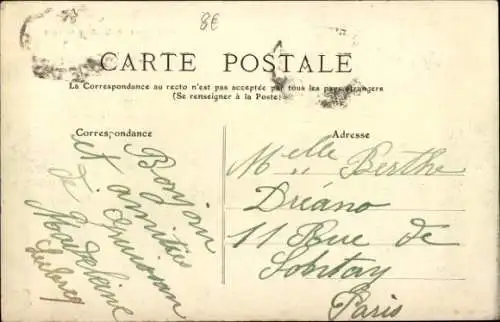 8€
CARTE POSTALE
La Correspondance au recto n'est pas acceptée par tous les pays étrangers
(Se renseigner à la Poste)
Correspondance
Bonjour
et amitiés
de
Madeleine
Adresse
Melle Berthe
Dréano
11 Rue de
Paris